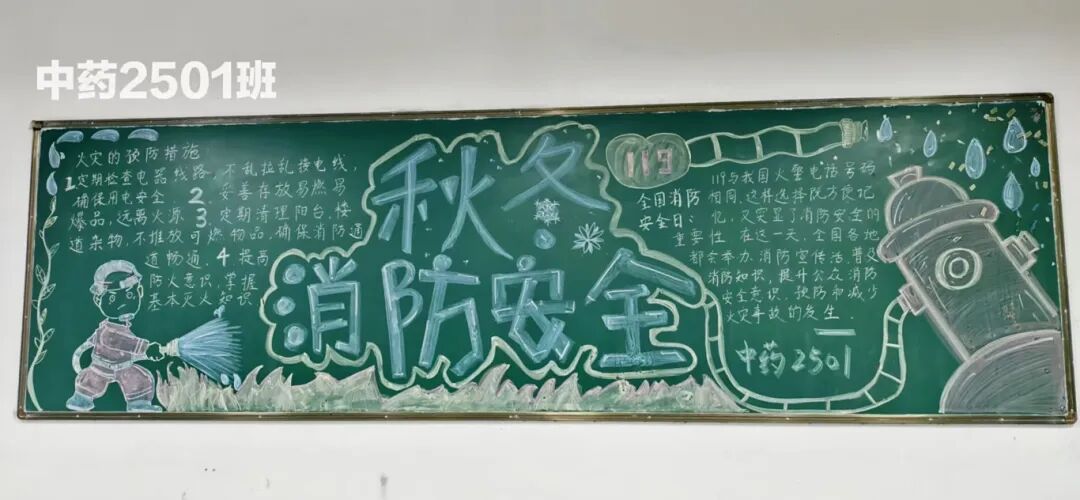 中药2501班
火灾的预防措施
1 定期检查电器线路,不乱拉乱接电线,
确保用电安全 2. 妥善存放易燃易
爆品,远离火源 3. 定期清理阳台、楼
道杂物,不堆放可燃物品,确保消防通
道畅通。4 提高
防火意识,掌握
基本灭火知识
秋冬
消防安全
119
全国消防
安全日:
119与我国火警电话号码
相同,这样选择既方便记
忆,又突显了消防安全的
重要性 在这一天,全国各地
都会举办消防宣传活 普及
消防知识,提升公众消防
安全意识,预防和减少
火灾事故的发生.
中药2501